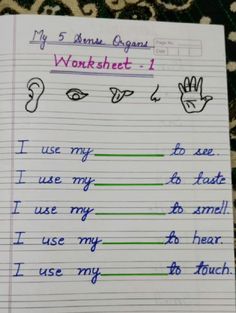 My 5 Sense Organs
Page No.
Date
Worksheet - 1
I use my ________ to see.
I use my ________ to taste
I use my ________ to smell.
I use my ________ to hear.
I use my ________ to touch.